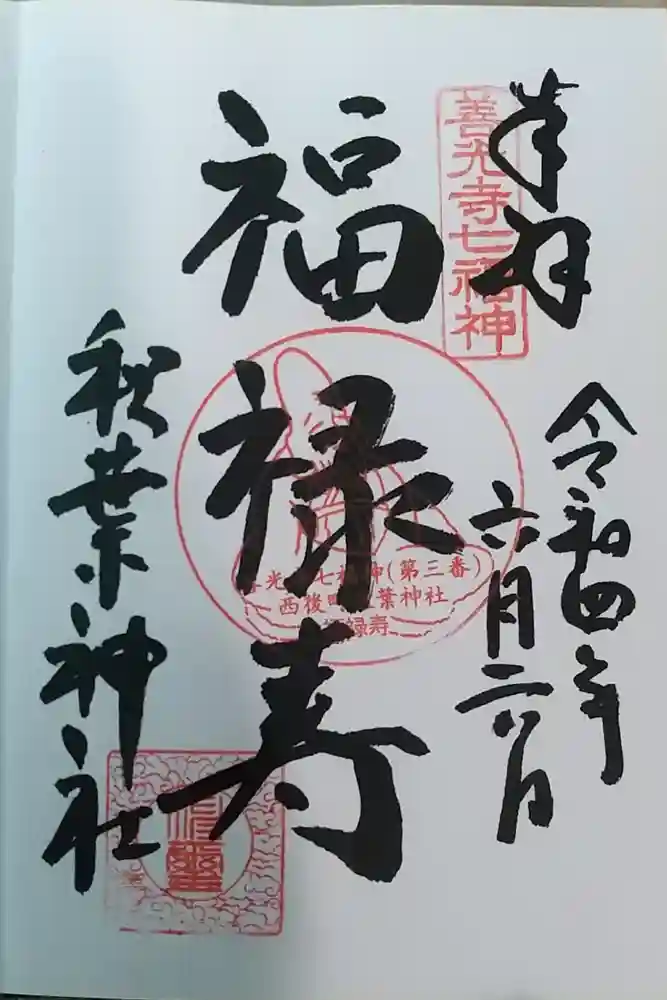 奉拝
善光寺七福神
令和四年
六月二八日
福禄寿
善光寺七福神(第三番)
西後町秋葉神社
福禄寿
秋葉神社